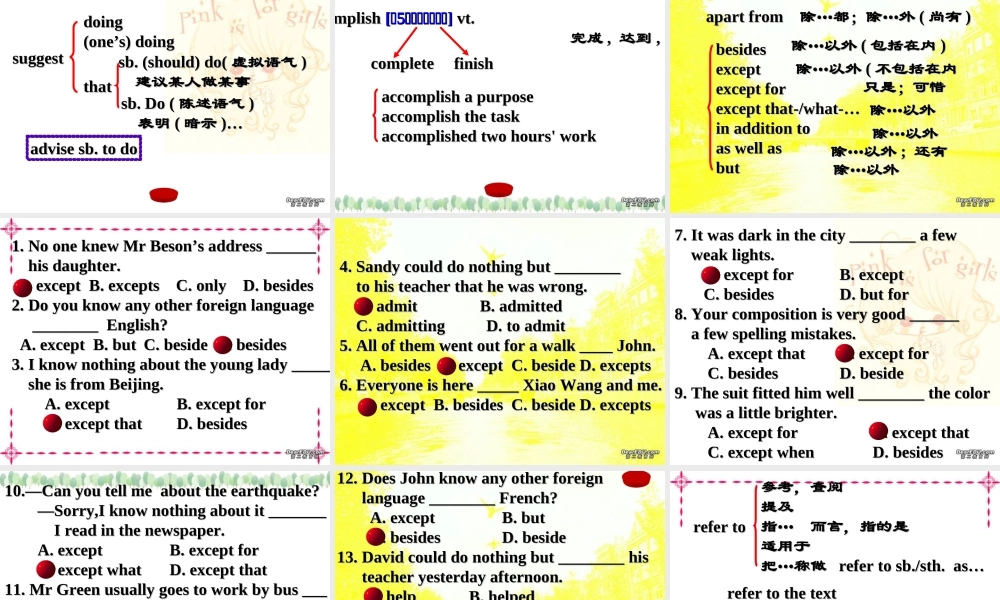 doing
(one’s) doing
suggest
sb. (should) do( 虚拟语气 )
建议某人做某事
that
sb. Do ( 陈述语气 )
表明 ( 暗示 )…
advise sb. to do
mplish
vt.
完成 , 达到 ,
complete finish
accomplish a purpose
accomplish the task
accomplished two hours' work
apart from 除…都; 除…外 ( 尚有 )
besides 除…以外 ( 包括在内 )
except 除…以外 ( 不包括在内
except for 只是; 可惜
except that-/what-… 除…以外
in addition to 除…以外
as well as 除…以外 ; 还有
but 除…以外
1. No one knew Mr Beson’s address ______
his daughter.
except B. excepts C. only D. besides
2. Do you know any other foreign language
________ English?
A. except B. but C. beside besides
3. I know nothing about the young lady _____
she is from Beijing.
A. except B. except for
except that D. besides
4. Sandy could do nothing but ________
to his teacher that he was wrong.
admit B. admitted
C. admitting D. to admit
5. All of them went out for a walk ____ John.
A. besides except C. beside D. excepts
6. Everyone is here _____ Xiao Wang and me.
except B. besides C. beside D. excepts
7. It was dark in the city ________ a few
weak lights.
except for B. except
C. besides D. but for
8. Your composition is very good ______
a few spelling mistakes.
A. except that except for
C. besides D. beside
9. The suit fitted him well ________ the color
was a little brighter.
A. except for except that
C. except when D. besides
10.—Can you tell me about the earthquake?
—Sorry,I know nothing about it _______
I read in the newspaper.
A. except B. except for
except what D. except that
11. Mr Green usually goes to work by bus ___
12. Does John know any other foreign
language ________ French?
A. except B. but
besides D. beside
13. David could do nothing but ________ his
teacher yesterday afternoon.
help B. helped
参考, 查阅
提及
refer to 指… 而言, 指的是
适用于
把…称做 refer to sb./sth. as…
refer to the text